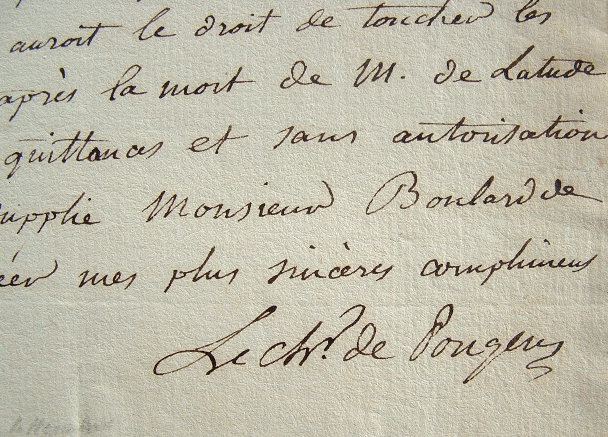 auroit le droit de toucher les
après la mort de M. de Latude
quittances et sans autorisation
supplie Monsieur Boulard de
éer mes plus sincères complimens
Le Chr. de Pougens